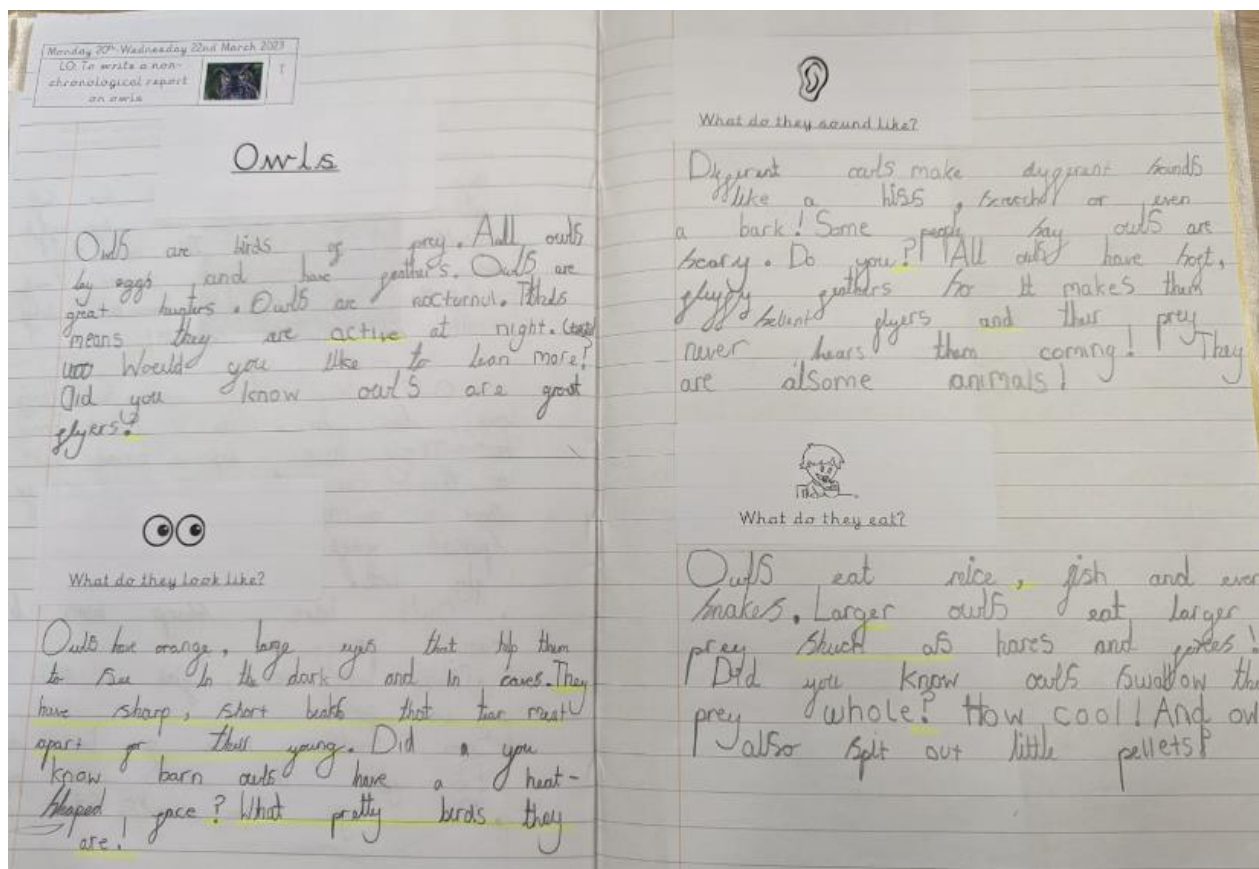 Monday 20th-Wednesday 22nd March 2023
LO: To write a non-
chronological report
on owls
T
Owls
Owls are birds of prey. All owls
lay eggs and have feathers. Owls are
great hunters. Owls are nocturnul. This
means they are active at night.
Would you like to lean more?
Did you know owls are great
flyers?
What do they look like?
Owls have orange, large eyes that help them
to see in the dark and in caves. They
have sharp, short beaks that tear meat
apart for their young. Did you
know barn owls have a heat-
shaped face? What pretty birds they
are!
What do they sound like?
Different owls make dyfferent sounds
like a hiss, screech or even
a bark! Some people say owls are
scary. Do you? All owls have soft,
fluffy feathers so it makes them
selient flyers and their prey
never hears them coming! They
are alsome animals!
What do they eat?
Owls eat mice, fish and even
snakes. Larger owls eat larger
prey shuch as hares and foxes!
Did you know owls swallow ther
prey whole? How cool! And owl
also spit out little pellets!